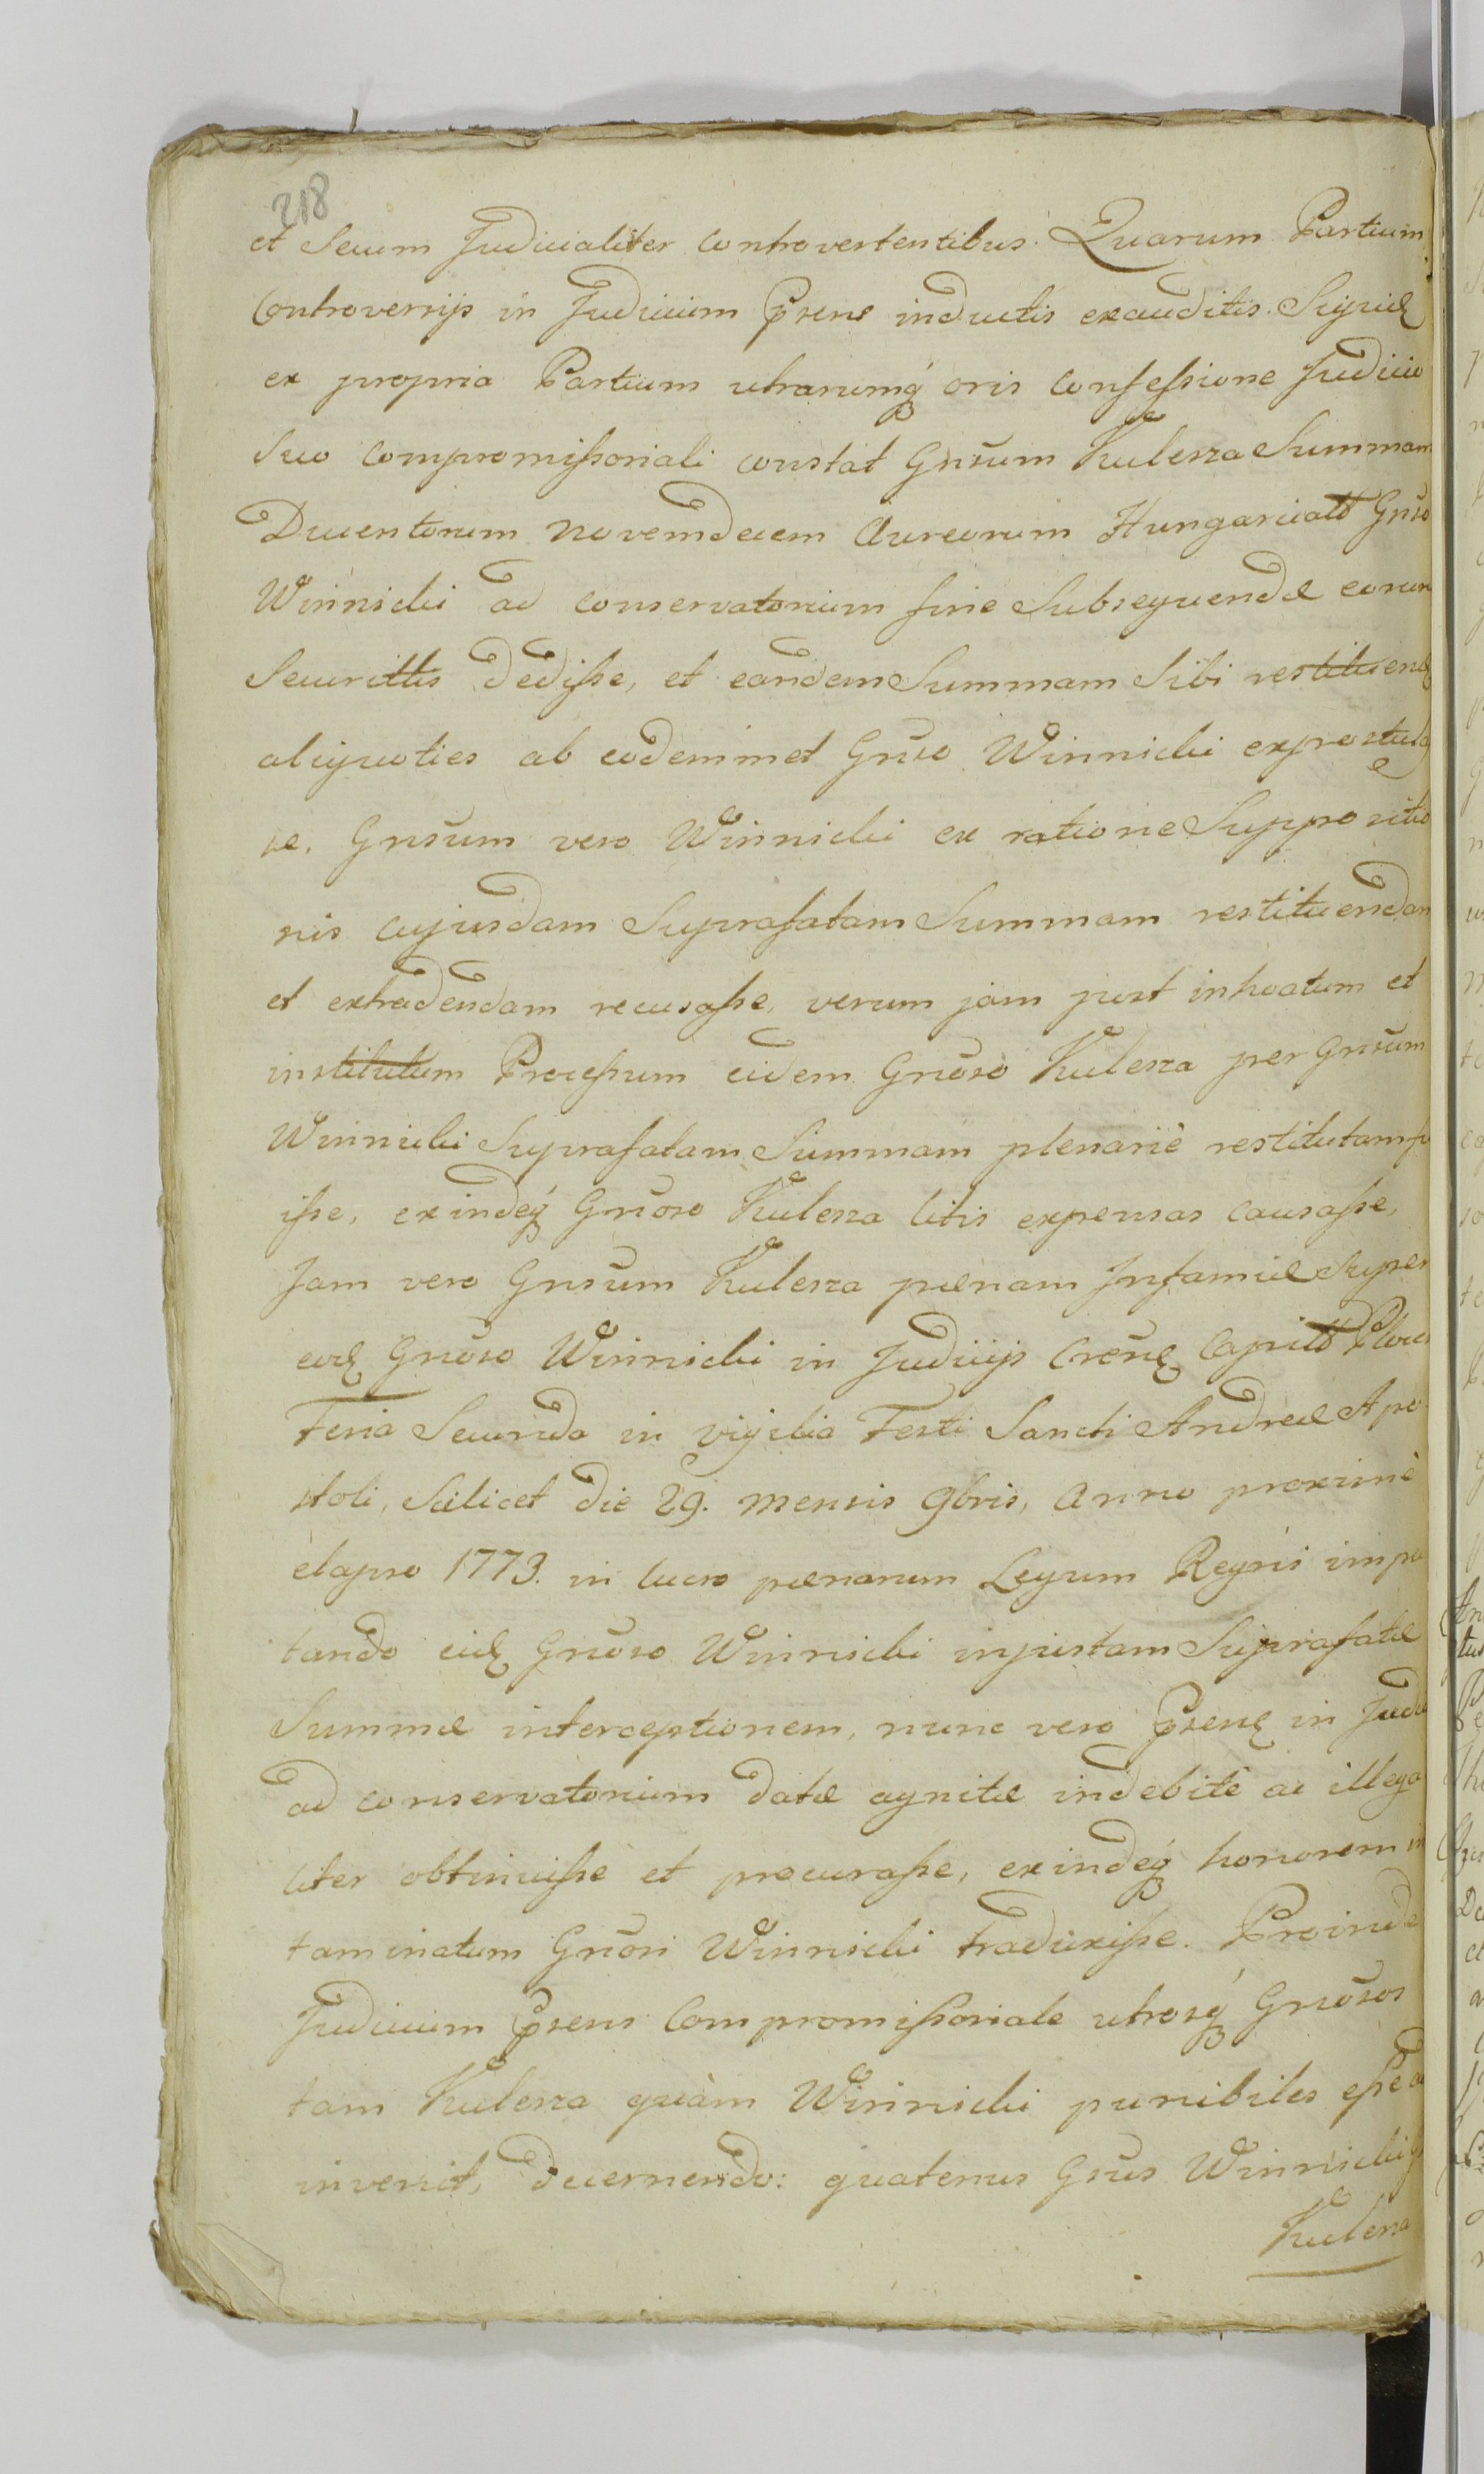 218
et Secum Judicialiter Controvertentibus. Quarum Partium
Controversijs in Judicium Prens inductis exauditis. Siquid
ex propria Partium utrarumq́ oris Confessione Judicio
Suo Compromissoriali constat Gnsum Kulesza Summam
Ducentorum novemdecem Aureorum Hungaricalt Gnso
Winnicki ad conservatorium fine Subsequendæ eorum
Securittis dedisse, et eandem Summam Sibi restituend
aliquoties ab eodemmet Gnso Winnicki expostula
se, Gnsum vero Winnicki ex ratione Suppositio
nis cujusdam Suprafatam Summam restituendam
et extradendam recusasse, verum jam post inhoatum et
institutum Processum eidem Gnoso Kulesza per Gnsum
Winnicki Suprafatam Summam plenariè restitutam fu
isse, exindeq́ Gnoso Kulesza litis expensas causasse,
Jam vero Gnsum Kulesza pænam Infamiæ Super
eod Gnoso Winnicki in Judicijs Crens Capitt
Feria Secunda in vigilia Festi Sancti Andreæ Apo
stoli, Scilicet die 29. mensis 9bris, Anno proximè
elapso 1773. in lucro pænarum Legum Regni impu
tando eid Gnoso Winnicki injustam Suprafatæ
Summæ interceptionem, nunc vero Prens in Judi
ad conservatorium datæ agnitæ indebitè ac illega
liter obtinuisse et procurasse, exindeq́ honorem in
taminatum Gnosi Winnicki traduxisse. Proinde
Judicium Prens Compromissoriale utrosq́ Gnosos
tam Kulesza quàm Winnicki punibiles esse ad
invenit, decernendo: quatenus Gsus Winnicki
Kulesza